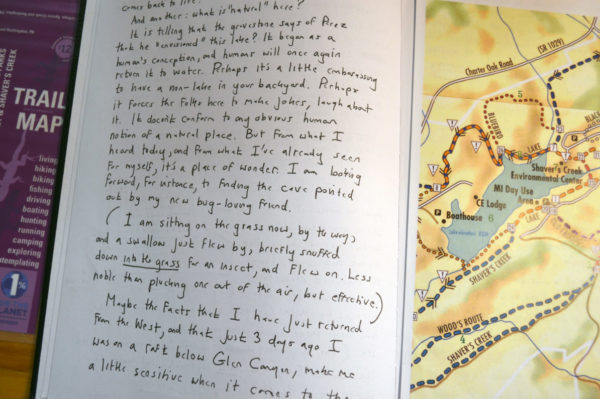 comes back to life?
And another: what is "natural" here?
It is telling that the gravestone says of Perez
that he "envisioned" this lake? It began as a
human's conception, and humans will once again
return it to water. Perhaps it's a little embarrassing
to have a non-lake in your backyard. Perhaps
it forces the folks here to make jokes, laugh about
it. It doesn't conform to any obvious human
notion of a natural place. But from what I
heard today, and from what I've already seen
for myself, it's a place of wonder. I am looking
forward, for instance, to finding the cave pointed
out by my new bug-loving friend.
(I am sitting on the grass now, by the way,
and a swallow just flew by, briefly snuffed
down into the grass for an insect, and flew on. Less
noble than plucking one out of the air, but effective.)
Maybe the facts that I have just returned
from the West, and that just 3 days ago I
was on a raft below Glen Canyon, make me
a little sensitive when it comes to the
PARKS
& SHAVER'S CREEK
TRAIL
MAP
living
hiking
biking
fishing
driving
boating
hunting
running
camping
exploring
contemplating
1%
PLANET
(SR 1029)
Charter Oak Road
5
BLUEBIRD
LAKE
Shaver's Creek
Environmental Center
MI Day Use
Area
CE Lodge
Boathouse
6
LAKE
SHAVER'S CREEK
WOOD'S ROUTE
4
SHAVER'S CREEK